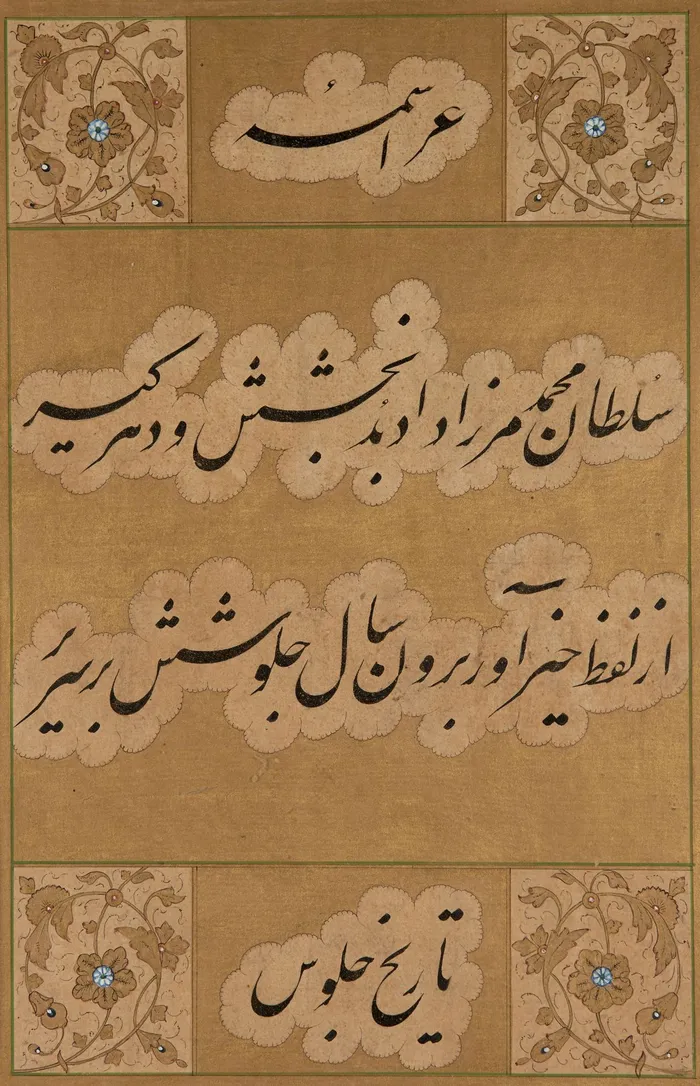 عز اسمه
سلطان محمد مرزا داد بد بخشش و دهر کیر
از لفظ خیر آور برون سال جلوسش بر سریر
تاریخ جلوس